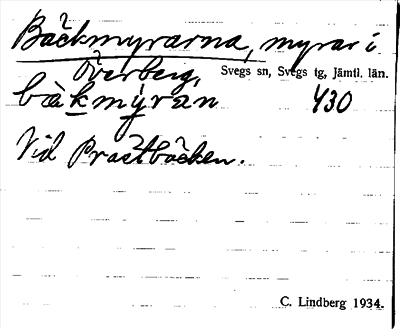 Bäckmyrarna, myrar i
Överberg, Svegs sn, Svegs tg, Jämtl. län.
bàkmýran 430
Vid Prästbäcken.
C. Lindberg 1934.